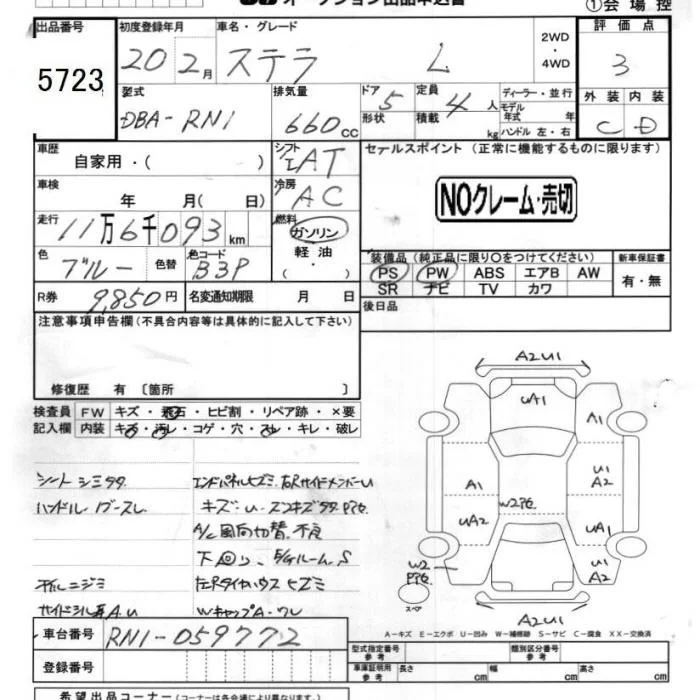 オークション出品申込書
①会場控
出品番号
5723
初度登録年月
20 2月
車名・グレード
ステラ L
2WD・4WD
評価点
3
型式
DBA-RN1
排気量
660cc
ドア 5
形状
定員 4人
積載 kg
ディーラー・並行
モデル年式 年
ハンドル 左・右
外装 内装
C D
車歴
自家用・( )
シフト
AT
セールスポイント (正常に機能するものに限ります)
NOクレーム・売切
車検
年 月( 日)
冷房
AC
走行
11万6千093km
燃料
ガソリン
軽油
( ・ )
色
ブルー
色替
色コード
B3P
装備品(純正品に限り○をつけてください)
新車保証書
PS PW ABS エアB AW
有・無
SR ナビ TV カワ
R券
9,850円
名変通知期限 月 日
後日品
注意事項申告欄(不具合内容等は具体的に記入して下さい)
修復歴 有〔箇所 〕
検査員記入欄
FW キズ・飛石・ヒビ割・リペア跡・×要
内装 キズ・汚レ・コゲ・穴・スレ・キレ・破レ
シートシミタタ
ハンドル
キズ:U.
A/C風向切替.不良
下回り.
ルームS
Wキャップ A.ワレ
A2U1
UA1
A1
A1
U1
A2
W2P6
UA2
UA1
W2
P6
U1
A2
スペア
A2U1
A-キズ E-エクボ U-凹み W-補修跡 S-サビ C-腐食 XX-交換済
車台番号
RN1-059772
登録番号
型式指定番号
参考
類別区分番号
参考
車庫証明用
参考
長さ cm 幅 cm 高さ cm
希望出品コーナー(コーナーは各会場により異なります。)